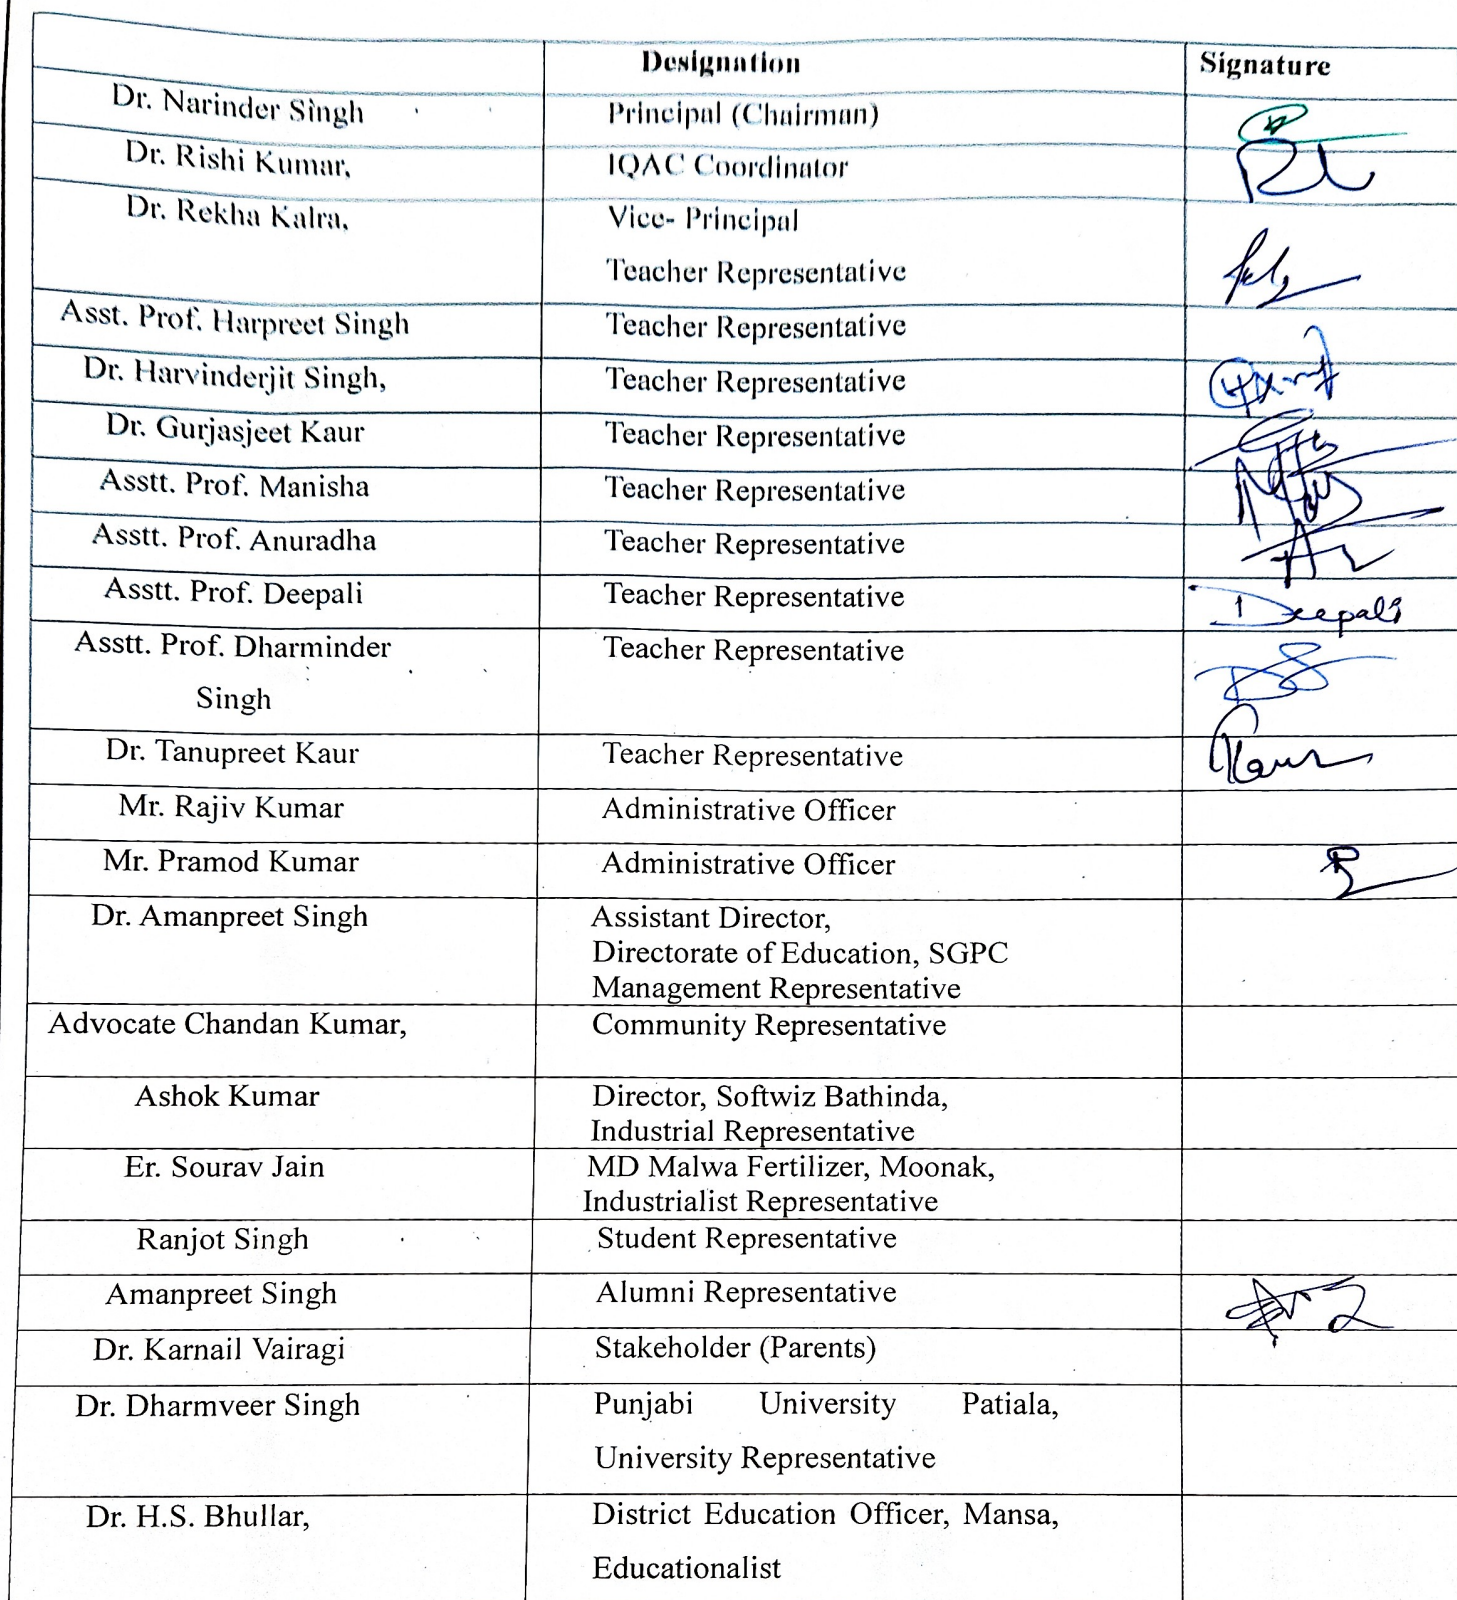 Designation Signature
Dr. Narinder Singh Principal (Chairman)
Dr. Rishi Kumar, IQAC Coordinator
Dr. Rekha Kalra, Vice- Principal
Teacher Representative
Asst. Prof. Harpreet Singh Teacher Representative
Dr. Harvinderjit Singh, Teacher Representative
Dr. Gurjasjeet Kaur Teacher Representative
Asstt. Prof. Manisha Teacher Representative
Asstt. Prof. Anuradha Teacher Representative
Asstt. Prof. Deepali Teacher Representative Deepali
Asstt. Prof. Dharminder Teacher Representative
Singh
Dr. Tanupreet Kaur Teacher Representative
Mr. Rajiv Kumar Administrative Officer
Mr. Pramod Kumar Administrative Officer
Dr. Amanpreet Singh Assistant Director,
Directorate of Education, SGPC
Management Representative
Advocate Chandan Kumar, Community Representative
Ashok Kumar Director, Softwiz Bathinda,
Industrial Representative
Er. Sourav Jain MD Malwa Fertilizer, Moonak,
Industrialist Representative
Ranjot Singh Student Representative
Amanpreet Singh Alumni Representative
Dr. Karnail Vairagi Stakeholder (Parents)
Dr. Dharmveer Singh Punjabi University Patiala,
University Representative
Dr. H.S. Bhullar, District Education Officer, Mansa,
Educationalist